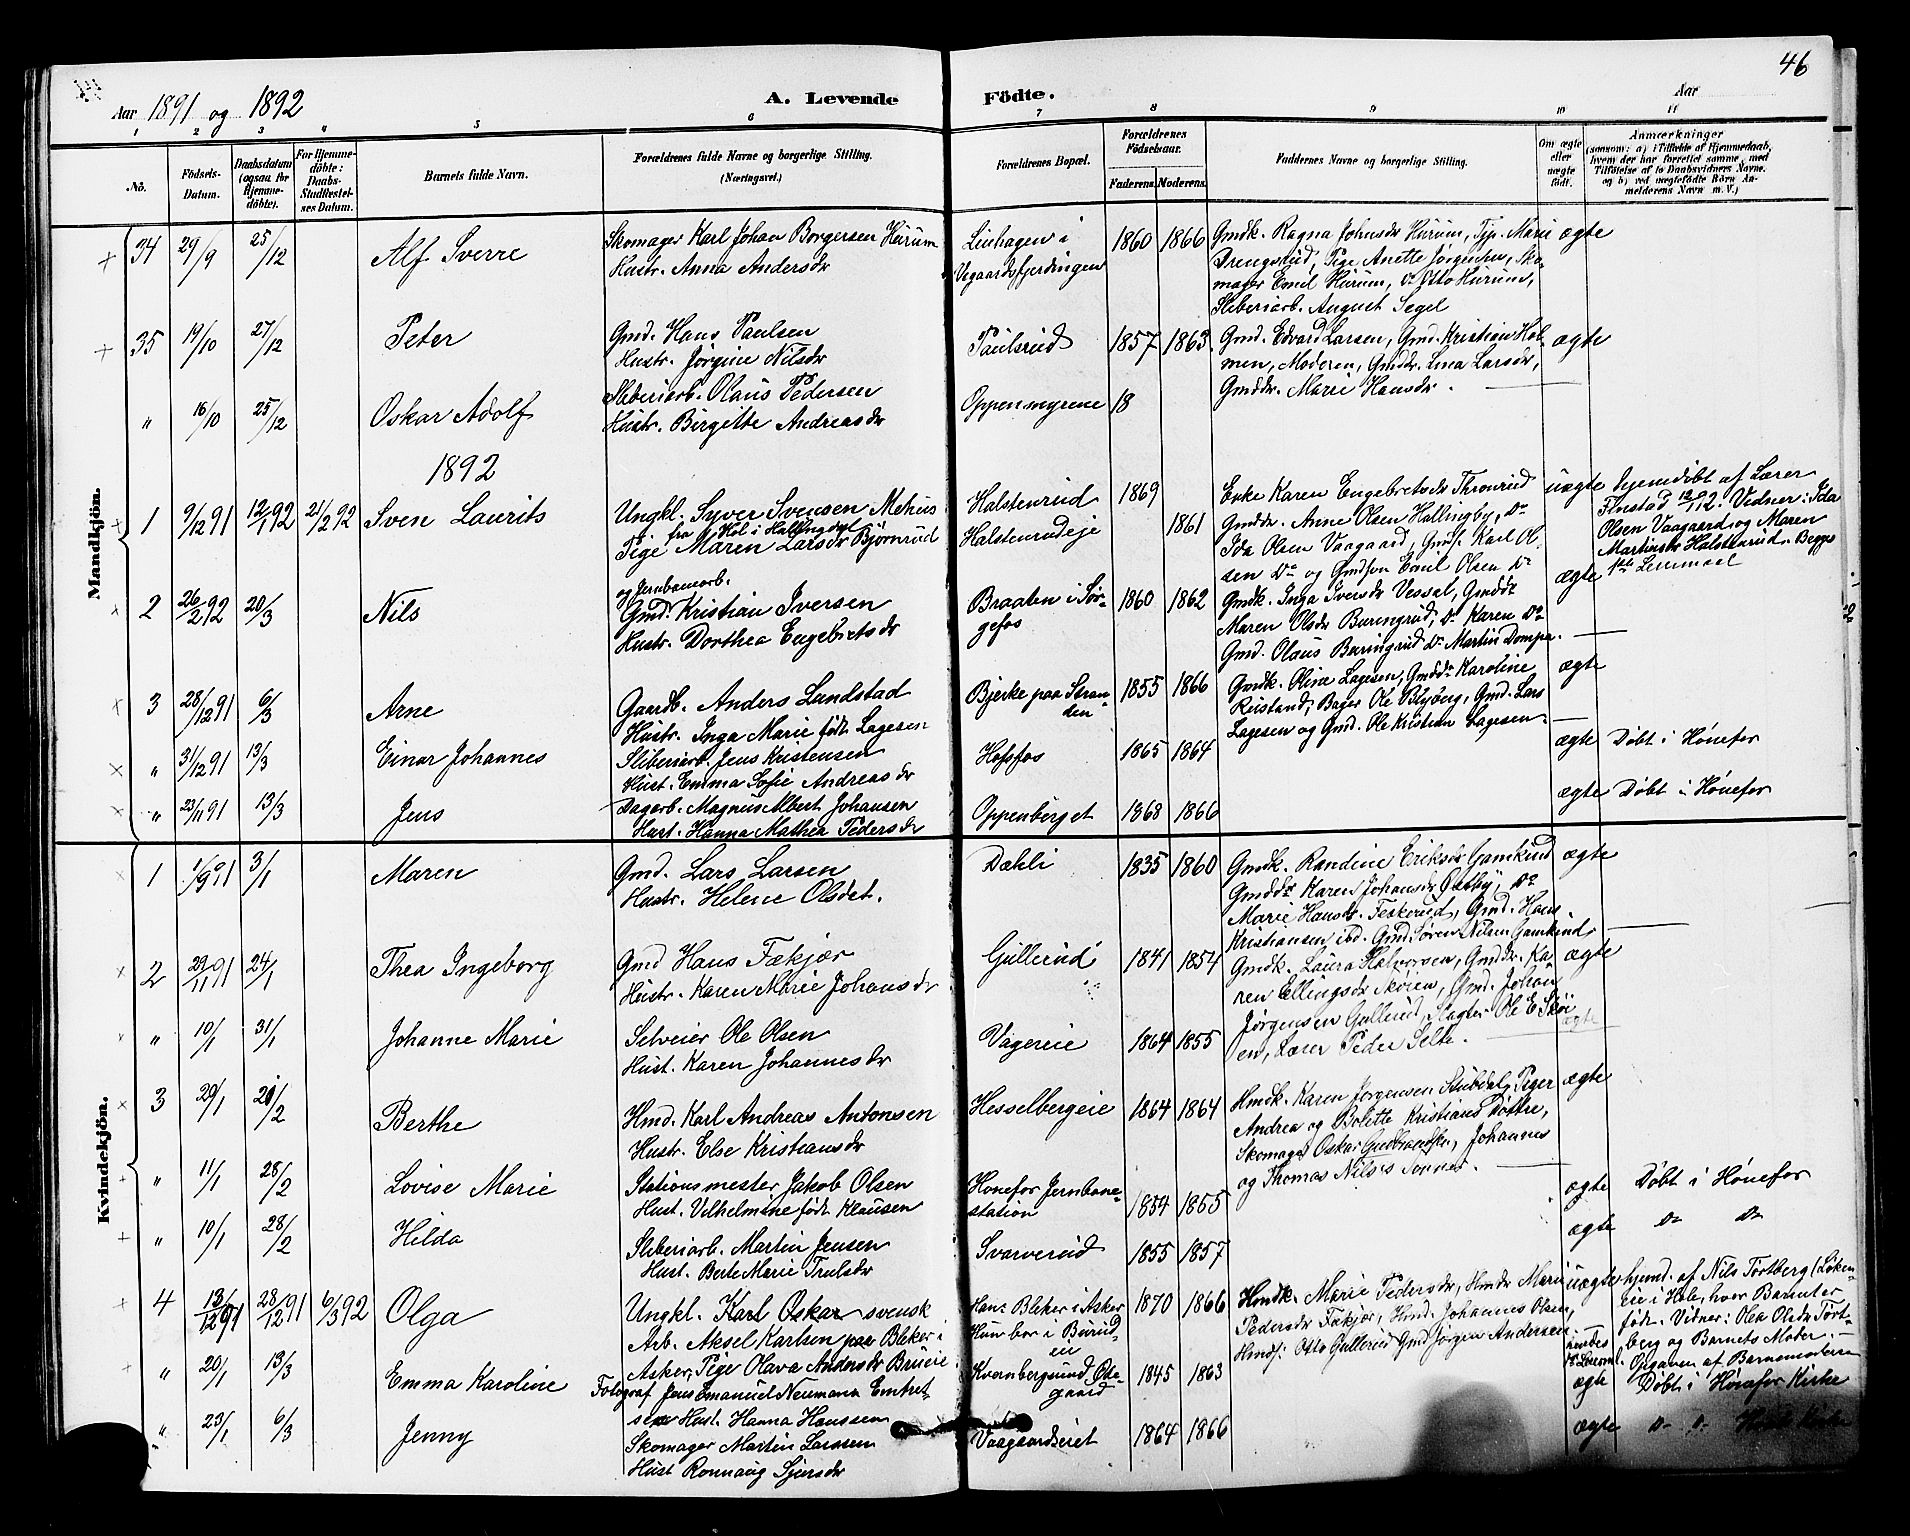 46
Aar 1891 og 1892
A. Levende Födte.
Aar
1 2 3 4 5 6 7 8 9 10 11
No.
Födsels-Datum.
Daabsdatum (ogsaa for Hjemmedöbte).
For Hjemmedöbte: Daabs-Stadfæstelses Datum.
Barnets fulde Navn.
Forældrenes fulde Navne og borgerlige Stilling.
(Næringsvei.)
Forældrenes Bopæl.
Forældrenes Födselsaar.
Faderens. Moderens.
Faddernes Navne og borgerlige Stilling.
Om ægte eller uægte födt.
Anmærkninger
(saasom: a) i Tilfælde af Hjemmedaab, hvem der har forrettet samme, med Tilföielse af to Daabsvidners Navne, og b) ved uægtefödte Börn Anmelderens Navn m. V.)
Mandkjön.
34 29/9 25/12 Alf Sverre
Skomager Karl Johan Borgersen Hurum
Hustr. Anna Andersdr
Linhagen i
Vegaardsfjerdingen
1860 1866
Gmdk. Ragna Johnsdr Hurum, Pige Marie
Drengstud, Pige Anette Jørgensen, Sko-
mager Emil Hurum, Do Otto Hurum,
Sliberiarb. August Segel
ægte
35 19/10 27/12 Peter
Gmd. Hans Paulsen
Hustr. Jørgine Nilsdr
Paulsrud 1857 1863
Gmd. Edvard Larsen, Gmd. Kristian Hol-
men, Moderen, Gmddr. Lina Larsdr,
Gmddr. Marie Hansdr.
ægte
" 16/10 25/12 Oskar Adolf
Sliberiarb. Olaus Pedersen
Hustr. Birgitte Andreasdr
Oppenmyrene 18
1892
1 9/12 91 12/1 92 21/2 92 Sven Laurits
Ungkl. Syver Svensen Mehus
fra Hol i Hallingdal
Pige Maren Larsdr Bjørnrud
Halstenrud
Halstenrudeje
1869 1861
Enke Karen Engebretsdr Thronrud
Gmddr. Anne Olsen Hallingby, Do
Ida Olsen Vaagaard, Gmdf. Karl Ol-
sen Do og Gmdsøn Emil Olsen Do
uægte
hjemdøbt af Lærer
Finstad 12/12. Vidner: Ida
Olsen Vaagaard og Maren
Martinsdr Halstenrud. Begges
1ste Leiermaal
2 26/2 92 20/3 Nils
og Jernbanearb.
Gmd. Kristian Iversen
Hustr. Dorthea Engebretsdr
Braaten i Sør-
gefos
1860 1862
Gmdk. Inga Iversdr Vessal, Gmddr
Maren Olsdr Buringrud, Do Karen Do
Gmd. Olaus Buringrud Do Martin Dompa.
ægte
3 28/12 91 6/3 Arne
Gaardb. Anders Lundstad
Hustr. Inga Marie født Lagesen
Bjerke paa Stran-
den
1855 1866
Gmdk. Oline Lagesen, Gmddr Karoline
Reistand, Bager Ole Blyberg, Gmd. Lars
Lagesen og Gmd. Ole Kristian Lagesen.
ægte
" 31/12 91 13/3 Einar Johannes
Sliberiarb. Jens Kristensen
Hust. Emma Sofie Andreasdr
Hofsfos 1865 1864
ægte Døbt i Hønefos
" 23/11 91 13/3 Jens
Dagarb. Magnus Albert Johansen
Hust. Hanna Mathea Pedersdr
Oppenberget 1868 1866
ægte Døbt i Hønefos
Kvindekjön.
1 1/9 91 3/1 Maren
Gmd. Lars Larsen
Hustr. Helene Olsdet.
Dæhli 1835 1860
Gmdk. Randine Eriksdr Gamkind
Gmddr Karen Johansdr Østby, Do
Marie Hansdr. Feskerud, Gmd. Hans
Kristiansen ibd. Gmd. Søren Nilsen Gamkind
ægte
2 29/11 91 24/1 Thea Ingeborg
Gmd Hans Fækjær
Hustr. Karen Marie Johansdr
Gullerud 1841 1854
Gmdk. Laura Halvorsen, Gmddr. Ka-
ren Ellingsdr Skøien, Gmd. Johan
Jørgensen Gullerud, Slagter Ole E Skøi-
en, Lærer Peder Selte.
ægte
" 10/1 31/1 Johanne Marie
Selveier Ole Olsen
Hust. Karen Johannesdr
Vagereie 1864 1855
ægte
3 20/1 21/2 Berthe
Hmd. Karl Andreas Antonsen
Hustr. Else Kristiansdr
Hesselbergeie 1864 1864
Hmdk. Karen Jørgensen Stubdal, Piger
Andrea og Bolette Kristians Døttre,
Skomager Oskar Gudbrandsen, Johannes
og Thomas Nils's Sønner.
ægte
" 11/1 28/2 Lovise Marie
Stationsmester Jakob Olsen
Hust. Vilhelmine født Klausen
Hønefos Jernbane-
station
1854 1855
ægte Døbt i Hønefos
" 10/1 28/2 Hilda
Sliberiarb. Martin Jensen
Hust. Berte Marie Trulsdr
Svarverud 1855 1857
ægte Do Do
4 13/12 91 28/12 91 6/3 92 Olga
Ungkl. Karl Oskar svensk
Arb. Aksel Karlsen paa Bleker i
Asker, Pige Olava Andersdr Brueie
Han: Bleker i Asker
Hun bor i Burud-
en
1870 1866
Hmdk. Marie Pedersdr, Hmdr Marie
Pedersdr Fækjær, Hmd. Johannes Olsen,
Hmdf. Otto Gullerud Gmd Jørgen Andersen
uægte
hendes
1ste Leierml.
hjemd. af Nils Tortberg (Løken-
eie i Hole, hvor Barnet er
født. Vidner: Olea Olsdr Tort-
berg og Barnets Moder. –
Opgaven af Barnemoderen
" 20/1 13/3 Emma Karoline
Fotograf Jens Emanuel Neumann Embret-
sen Hust. Hanna Hanssen
Kvernbergsund Øde-
gaard
1845 1863
ægte Døbt i Hønefos Kirke
" 23/1 6/3 Jenny
Skomager Martin Larssen
Hust Ronnaug Sjursdr
Vaagaardseiet 1864 1866
ægte Do Do